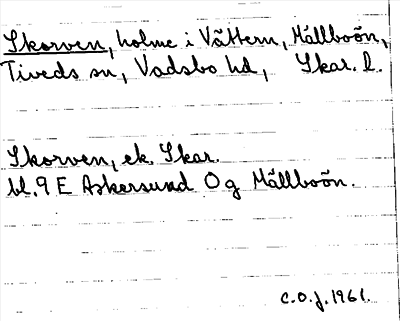 Skorven, holme i Vättern, Mällboön,
Tiveds sn, Vadsbo hd, Skar. l.
Skorven, ek. Skar.
bl. 9 E Askersund 0 g Mällboön.
C.O.J. 1961.